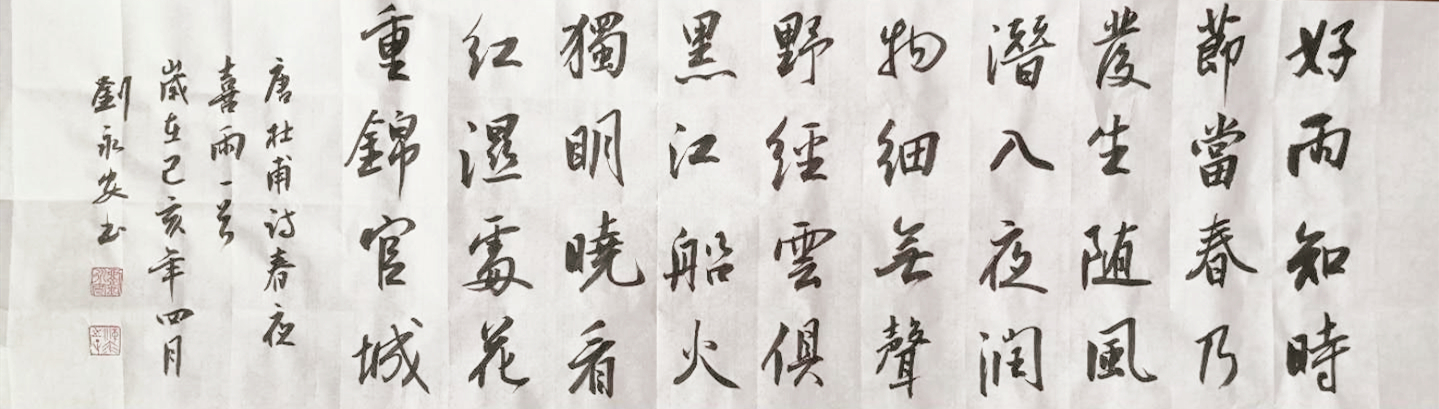 好雨知時
節當春乃
發生随風
潛入夜潤
物細無聲
野經雲俱
黑江船火
獨明曉看
紅濕處花
重錦官城
唐杜甫詩春夜
喜雨一首
歲在己亥年四月
劉永安书